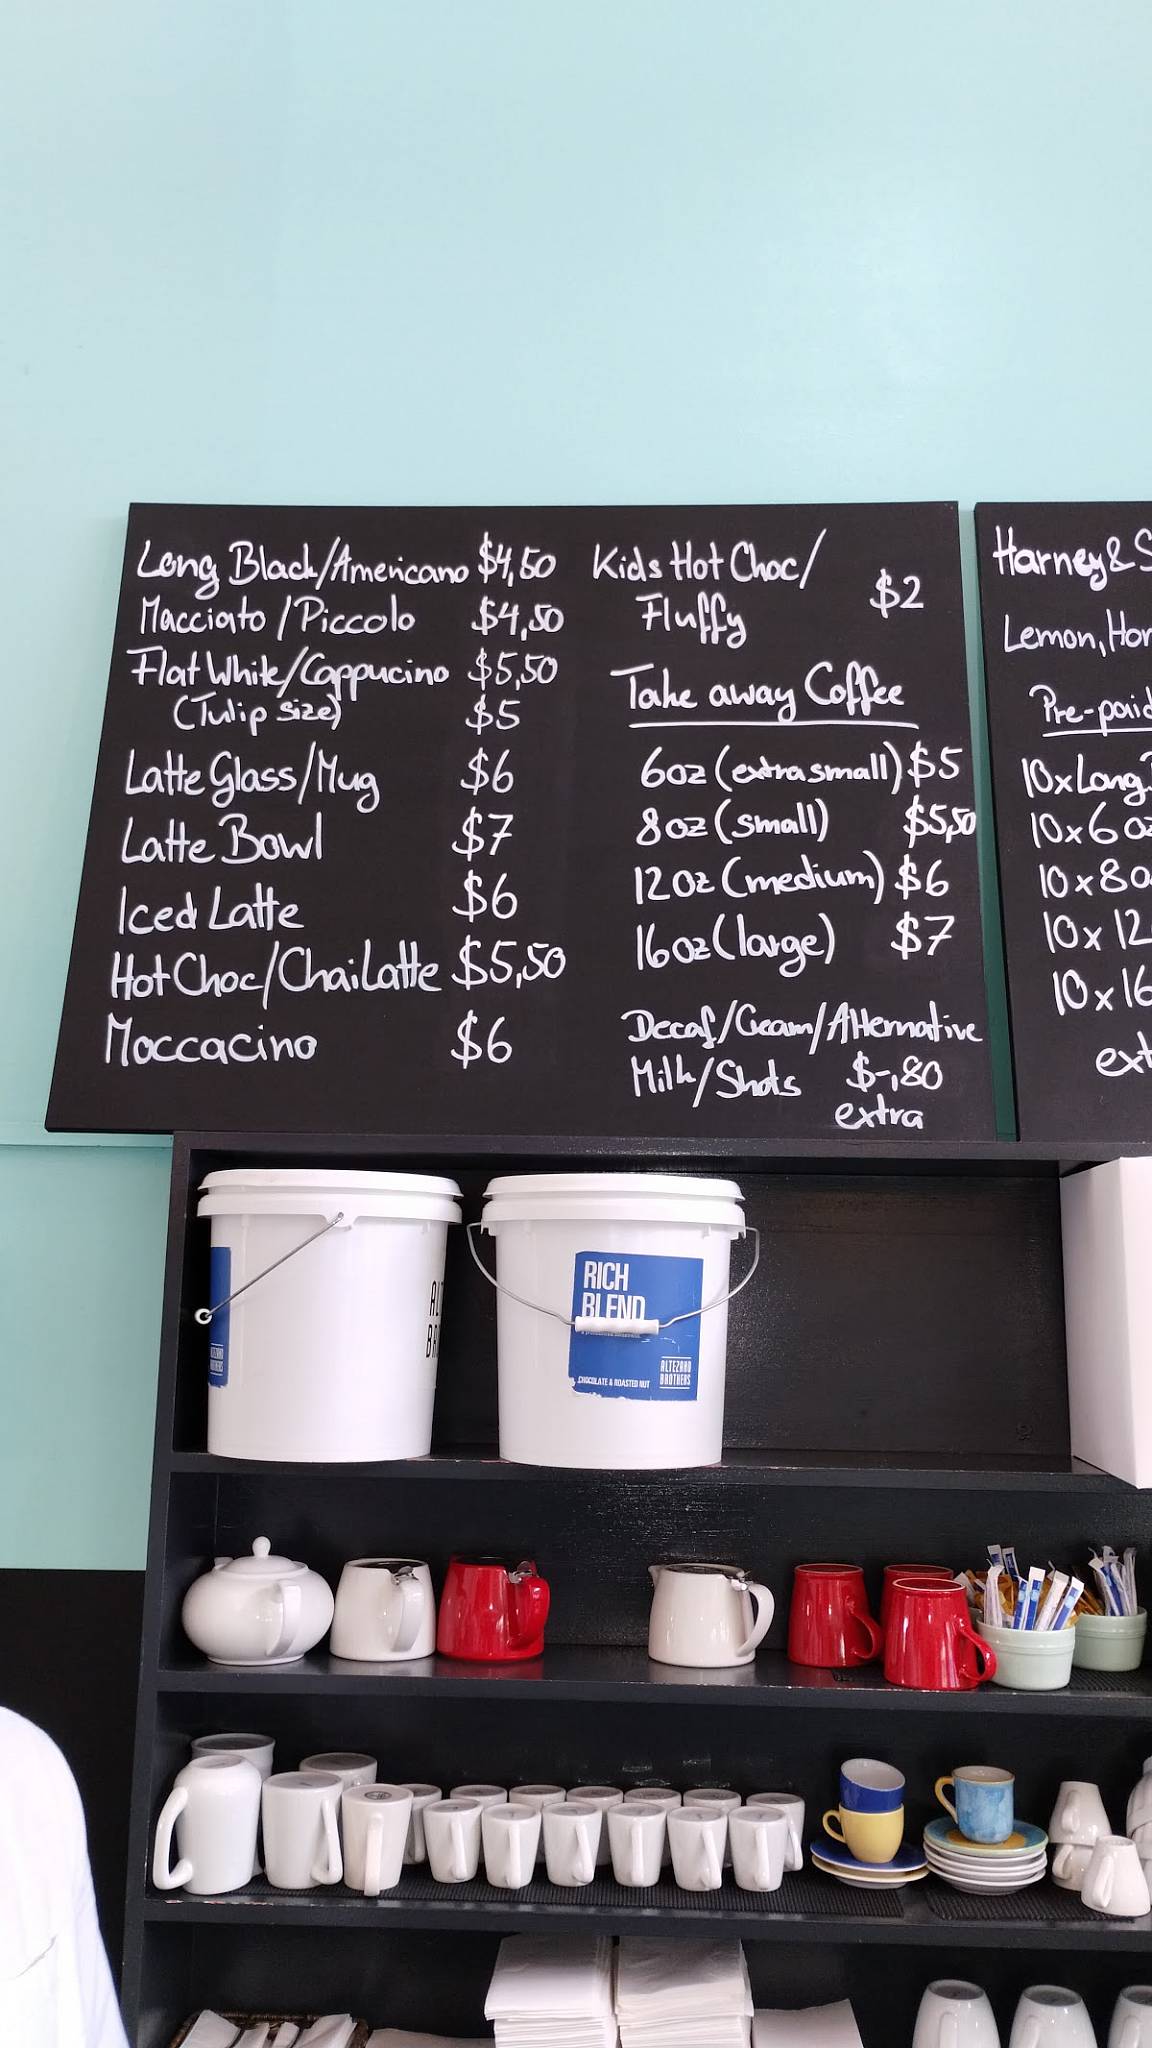 Long Black/Americano $4,50
Macciato/Piccolo $4,50
Flat White/Cappucino $5,50
(Tulip size) $5
Latte Glass/Mug $6
Latte Bowl $7
Iced Latte $6
Hot Choc/Chai Latte $5,50
Moccacino $6
Kids Hot Choc/
Fluffy $2
Take away Coffee
6oz (extra small) $5
8oz (small) $5,50
12oz (medium) $6
16oz (large) $7
Decaf/Cream/Alternative
Milk/Shots $-,80
extra
Harney & S
Lemon, Hon
Pre-paid
10x Long
10x6oz
10x8o
10x12
10x16
ext
RICH
BLEND
CHOCOLATE & ROASTED NUT
ALTEZANO
BROTHERS